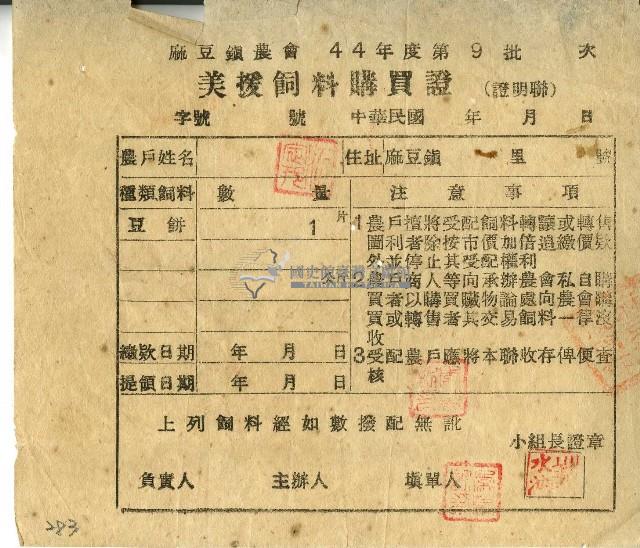 麻豆鎮農會 44年度第 9 批 次
美援飼料購買證 (證明聯)
字號 號 中華民國 年 月 日
農戶姓名 住址 麻豆鎮 里 號
種類飼料 數 量 注意事項
豆餅 1片
1 農戶擅將受配飼料轉讓或轉售
圖利者除按市價加倍追繳價款
外並停止其受配權利
2 農戶
買者以購買贓物論處向農會購
買或轉售者其交易飼料一律沒
收
3 受配農戶應將本聯收存俾便查
核
繳欵日期 年 月 日
提領日期 年 月 日
上列飼料經如數撥配無訛
小組長證章
負責人 主辦人 填單人
283